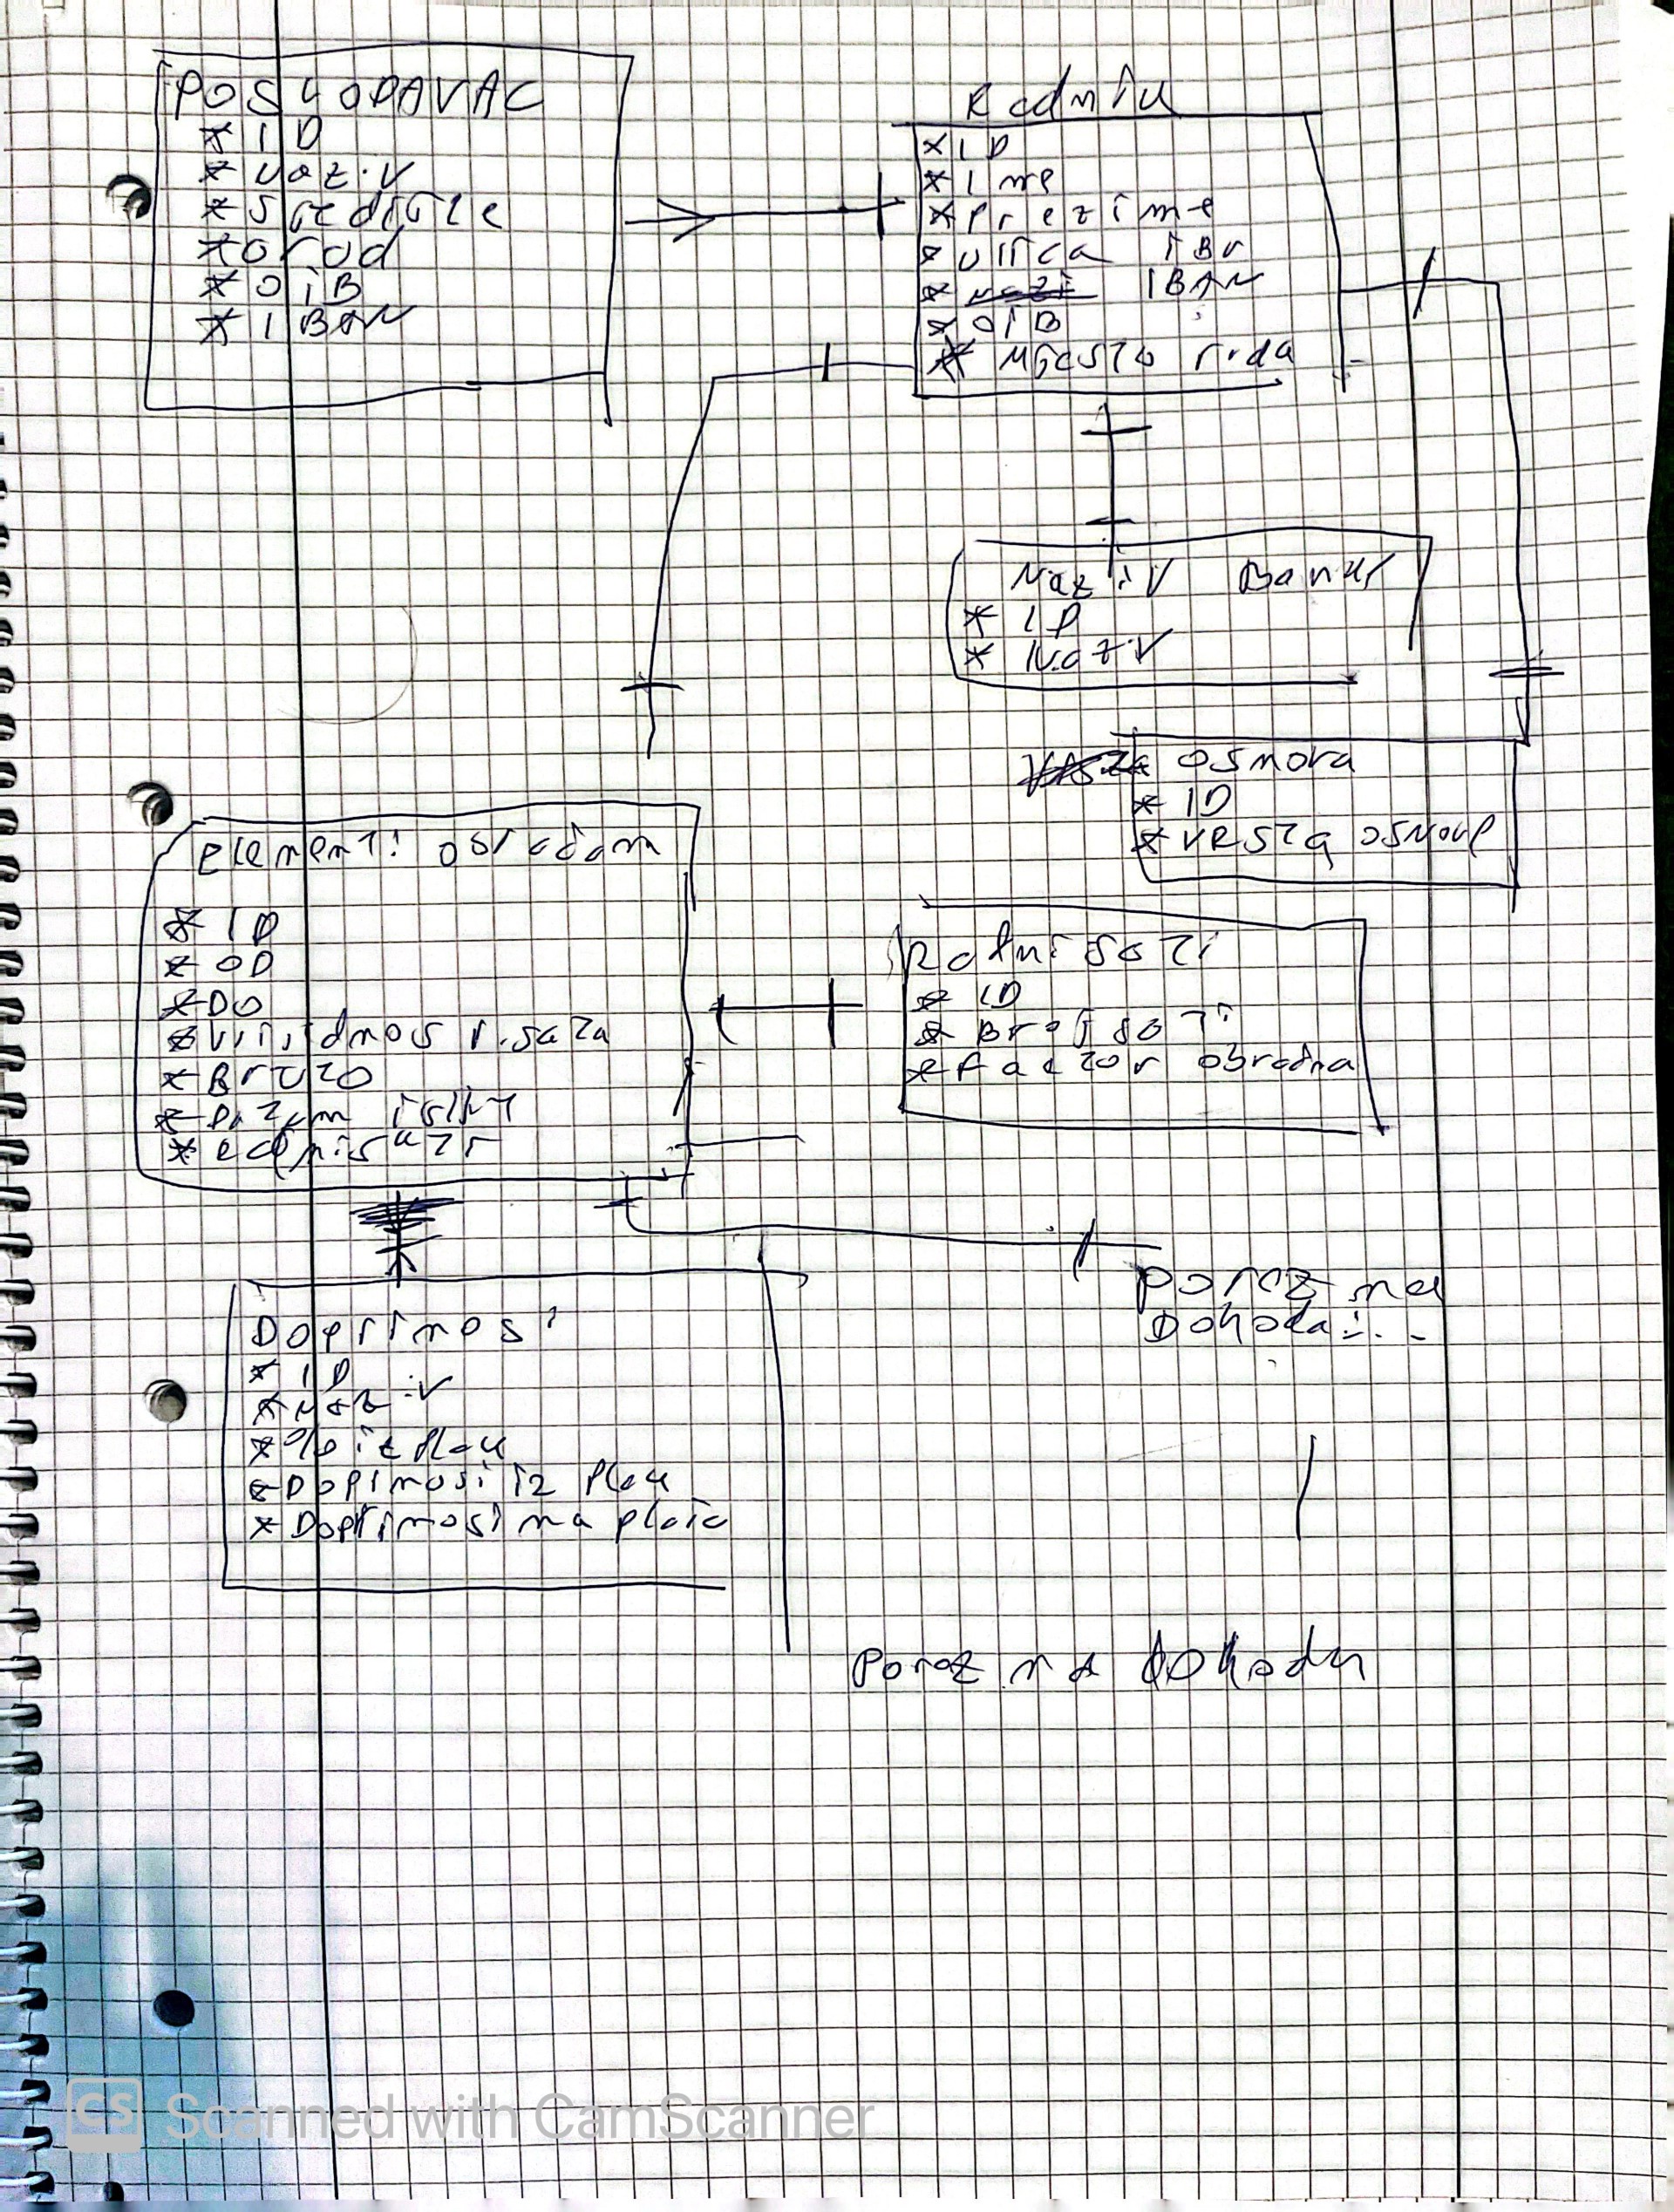 POSLODAVAC
* ID
* naziv
* Sjedište
* Grad
* OIB
* IBAN
Radnik
* ID
* Ime
* Prezime
* ulica i Br
* IBAN
* OIB
* Mjesto rada
Naziv Banke
* ID
* Naziv
osnova
* ID
* vrsta osnove
Elementi obračuna
* ID
* OD
* DO
* Bruto
* Datum
Radni sati
* ID
* Broj sati
* Faktor obračuna
Porez na
Dohodak
Doprinosi
* ID
* Naziv
* Doprinosi iz
* Doprinosi na plaću
Porez na dohodak
CS Scanned with CamScanner